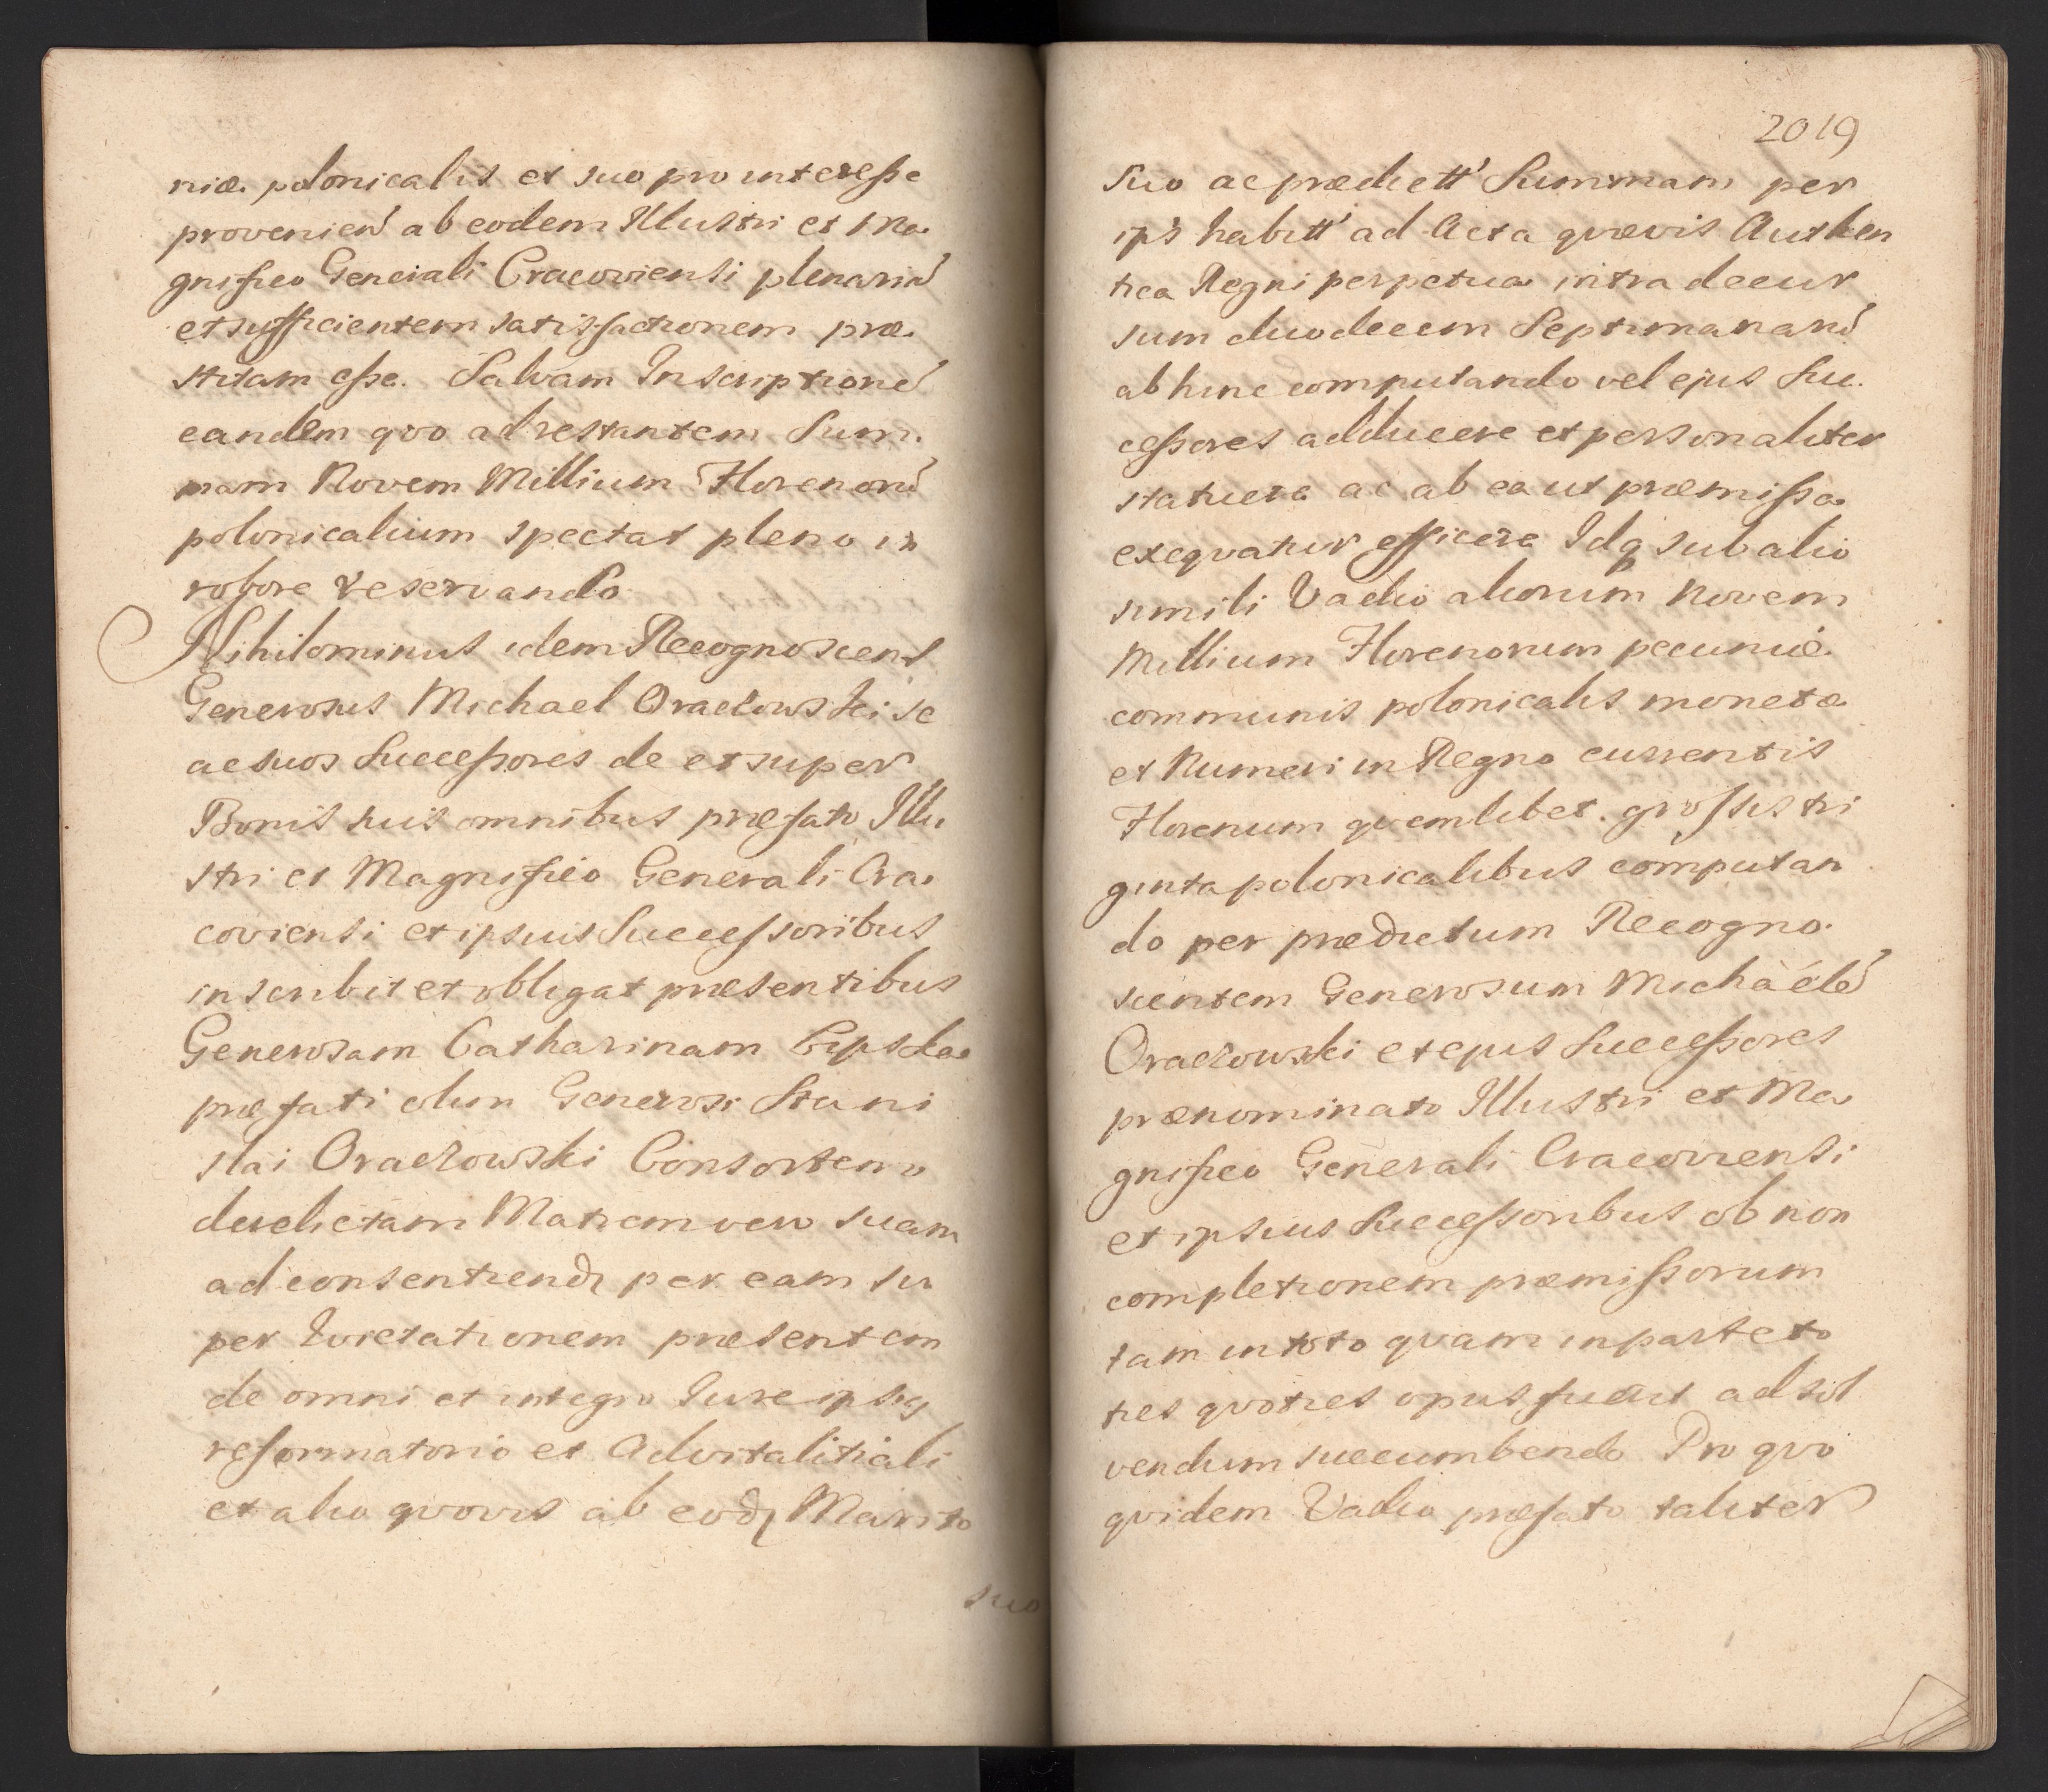 niæ polonicalis et suo pro interesse
provenien̄ ab eodem Illustri et Ma
gnifico Generali Cracoviensi plenariā
et sufficientem satisfactionem præ
stitam esse. Salvam Inscriptionē
eandem qvo ad restantem Sum
mam Novem Millium Florenorū
polonicalium spectat pleno in
robore reservando.
Nihilominus idem Recognoscens
Generosus Michael Oraczowski se
ac suos Successores de et super
Bonis suis omnibus præfato Illu
stri et Magnifico Generali Cra
coviensi et ipsius Successoribus
inscribit et obligat præsentibus
Generosam Catharinam
præfati olim Generosi Stani
slai Oraczowski Consortem
derelictam Matrem vero suam
ad consentiend per eam su
per qvietationem præsentem
de omni et integro Iure ipsiq
reformatorio et Advitalitiali
et alio qvovis ab eod Marito
suo
2019
Suo ac prædictt' Summam per
ips habitt' ad Acta qvævis Authen
tica Regni perpetua intra decur
sum duodecem Septimanarū
abhinc computando vel ejus Suc
cessores adducere et personaliter
statuere ac ab ea ut præmissa
exeqvatur efficere Idq sub alio
simili Vadio aliorum Novem
Millium Florenorum pecuniæ
communis polonicalis monetæ
et Numeri in Regno currentis
Florenum qvemlibet grossis tri
ginta polonicalibus computan
do per prædictum Recogno
scentem Generosum Michäelē
Oraczowski et ejus Successores
prænominato Illustri et Ma
gnifico Generali Cracoviensi
et ipsius Successoribus ob non
completionem præmissorum
tam in toto qvam in parte to
ties qvoties opus fuerit ad sol
vendum succumbendo Pro qvo
qvidem Vadio præfato taliter